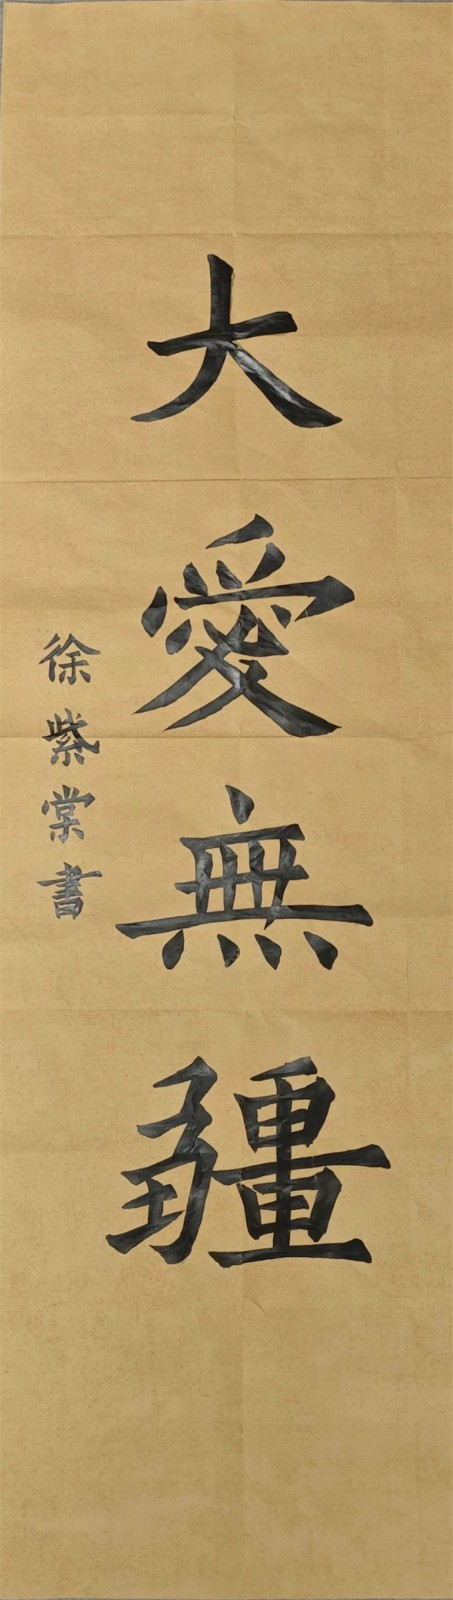 大愛無疆
徐紫棠書